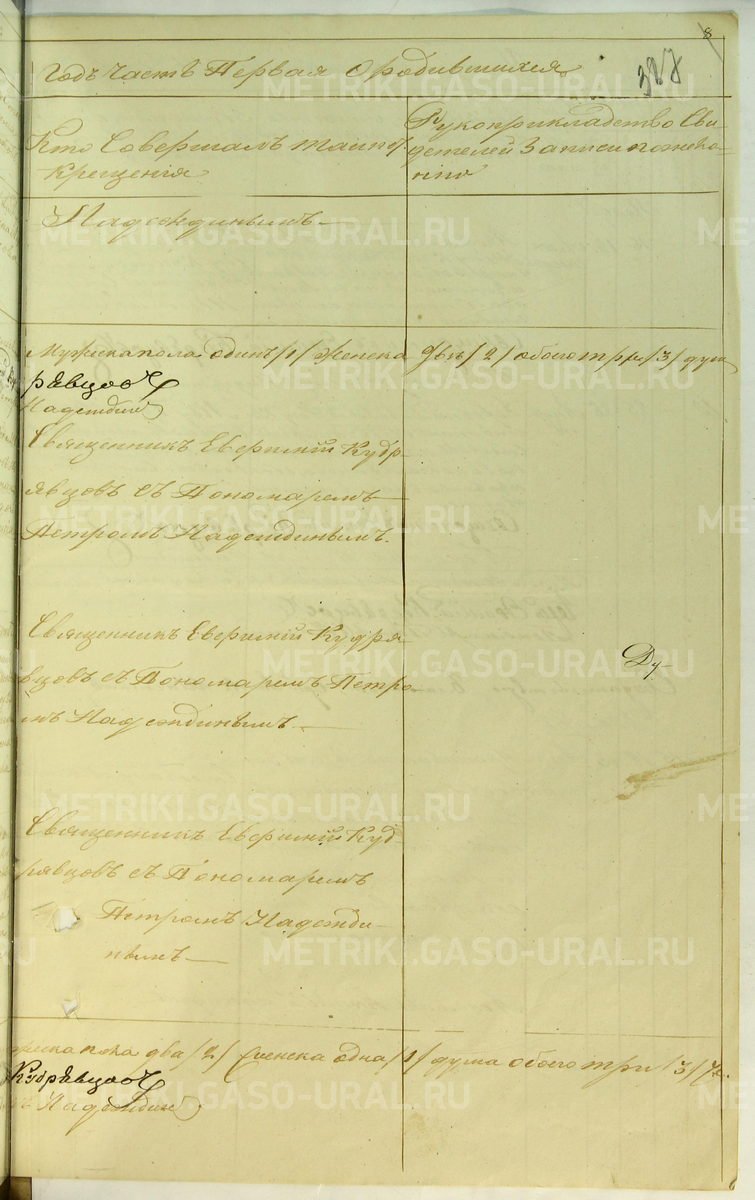 8
387
Годъ Часть Первая Ородившихся
Кто Совершалъ таинст
Крещенія
Рукоприкладство Сви
детелей Записи по жела
нію
Надеждинымъ
Мужска пола одинъ /1/ Женска две /2/ обоего три /3/ душ
рявцовъ
Надеждинъ
Священникъ Евфимій Кудр
явцовъ съ Пономаремъ
Петромъ Надеждинымъ.
Священникъ Евфимій Кудря
вцовъ съ Пономаремъ Петро
мъ Надеждинымъ
Ду-
Священникъ Евфимій Куд
рявцовъ съ Пономаремъ
Петромъ Надежди
нымъ
пола два /2/ Женска одна /1/ душа обоего три /3/
Кудрявцовъ
Надеждинъ
METRIKI.GASO-URAL.RU